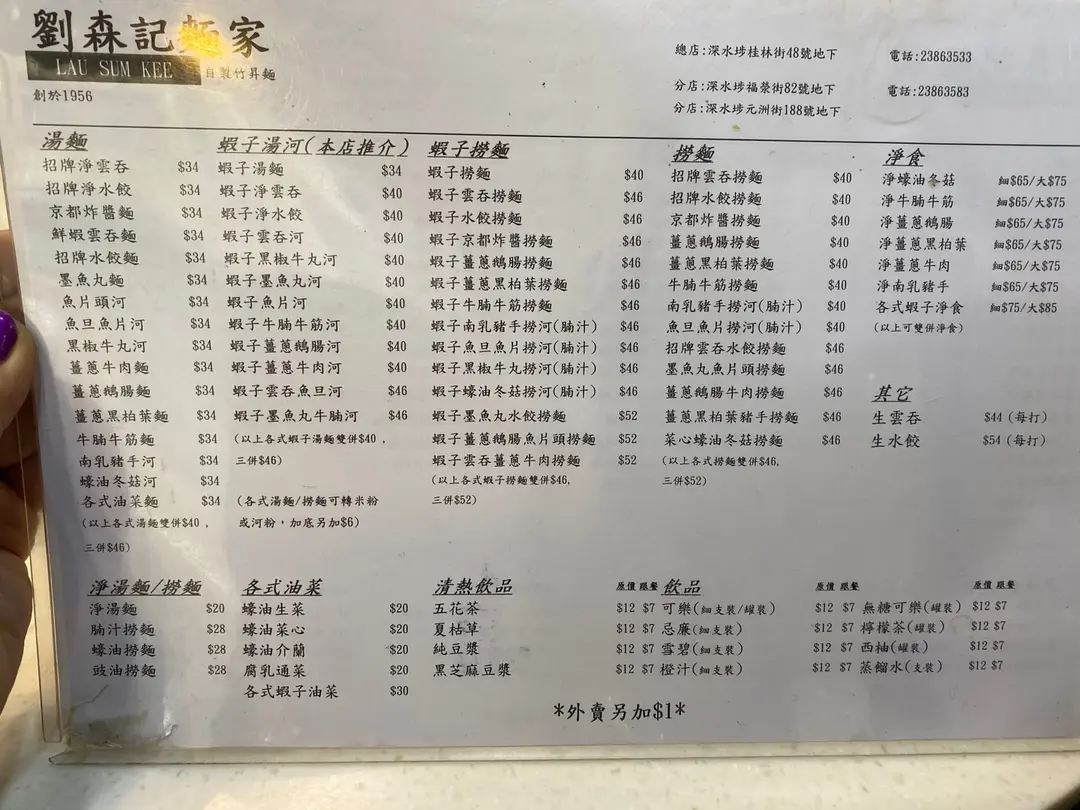 劉森記麵家
LAU SUM KEE 自製竹昇麵
創於1956
總店:深水埗桂林街48號地下 電話:23863533
分店:深水埗福榮街82號地下 電話:23863583
分店:深水埗元洲街188號地下
湯麵
招牌淨雲吞 $34
招牌淨水餃 $34
京都炸醬麵 $34
鮮蝦雲吞麵 $34
招牌水餃麵 $34
墨魚丸麵 $34
魚片頭河 $34
魚旦魚片河 $34
黑椒牛丸河 $34
薑蔥牛肉麵 $34
薑蔥鵝腸麵 $34
薑蔥黑柏葉麵 $34
牛腩牛筋麵 $34
南乳豬手河 $34
蠔油冬菇河 $34
各式油菜麵 $34
(以上各式湯麵雙併$40，
三併$46)
蝦子湯河(本店推介)
蝦子湯麵 $34
蝦子淨雲吞 $40
蝦子淨水餃 $40
蝦子雲吞河 $40
蝦子黑椒牛丸河 $40
蝦子墨魚丸河 $40
蝦子魚片河 $40
蝦子牛腩牛筋河 $40
蝦子薑蔥鵝腸河 $40
蝦子薑蔥牛肉河 $40
蝦子雲吞魚旦河 $46
蝦子墨魚丸牛腩河 $46
(以上各式蝦子湯麵雙併$40，
三併$46)
(各式湯麵/撈麵可轉米粉
或河粉，加底另加$6)
蝦子撈麵
蝦子撈麵 $40
蝦子雲吞撈麵 $46
蝦子水餃撈麵 $46
蝦子京都炸醬撈麵 $46
蝦子薑蔥鵝腸撈麵 $46
蝦子薑蔥黑柏葉撈麵 $46
蝦子牛腩牛筋撈麵 $46
蝦子南乳豬手撈河(腩汁) $46
蝦子魚旦魚片撈河(腩汁) $46
蝦子黑椒牛丸撈河(腩汁) $46
蝦子蠔油冬菇撈河(腩汁) $46
蝦子墨魚丸水餃撈麵 $52
蝦子薑蔥鵝腸魚片頭撈麵 $52
蝦子雲吞薑蔥牛肉撈麵 $52
(以上各式蝦子撈麵雙併$46,
三併$52)
撈麵
招牌雲吞撈麵 $40
招牌水餃撈麵 $40
京都炸醬撈麵 $40
薑蔥鵝腸撈麵 $40
薑蔥黑柏葉撈麵 $40
牛腩牛筋撈麵 $40
南乳豬手撈河(腩汁) $40
魚旦魚片撈河(腩汁) $40
招牌雲吞水餃撈麵 $46
墨魚丸魚片頭撈麵 $46
薑蔥鵝腸牛肉撈麵 $46
薑蔥黑柏葉豬手撈麵 $46
菜心蠔油冬菇撈麵 $46
(以上各式撈麵雙併$46,
三併$52)
淨食
淨蠔油冬菇 細$65/大$75
淨牛腩牛筋 細$65/大$75
淨薑蔥鵝腸 細$65/大$75
淨薑蔥黑柏葉 細$65/大$75
淨薑蔥牛肉 細$65/大$75
淨南乳豬手 細$65/大$75
各式蝦子淨食 細$75/大$85
(以上可雙併淨食)
其它
生雲吞 $44(每打)
生水餃 $54(每打)
淨湯麵/撈麵
淨湯麵 $20
腩汁撈麵 $28
蠔油撈麵 $28
豉油撈麵 $28
各式油菜
蠔油生菜 $20
蠔油菜心 $20
蠔油介蘭 $20
腐乳通菜 $20
各式蝦子油菜 $30
清熱飲品 原價 跟餐
五花茶 $12 $7
夏枯草 $12 $7
純豆漿 $12 $7
黑芝麻豆漿 $12 $7
飲品 原價 跟餐 原價 跟餐
可樂(細支裝/罐裝) $12 $7 無糖可樂(罐裝) $12 $7
忌廉(細支裝) $12 $7 檸檬茶(罐裝) $12 $7
雪碧(細支裝) $12 $7 西柚(罐裝) $12 $7
橙汁(細支裝) $12 $7 蒸餾水(支裝) $12 $7
*外賣另加$1*